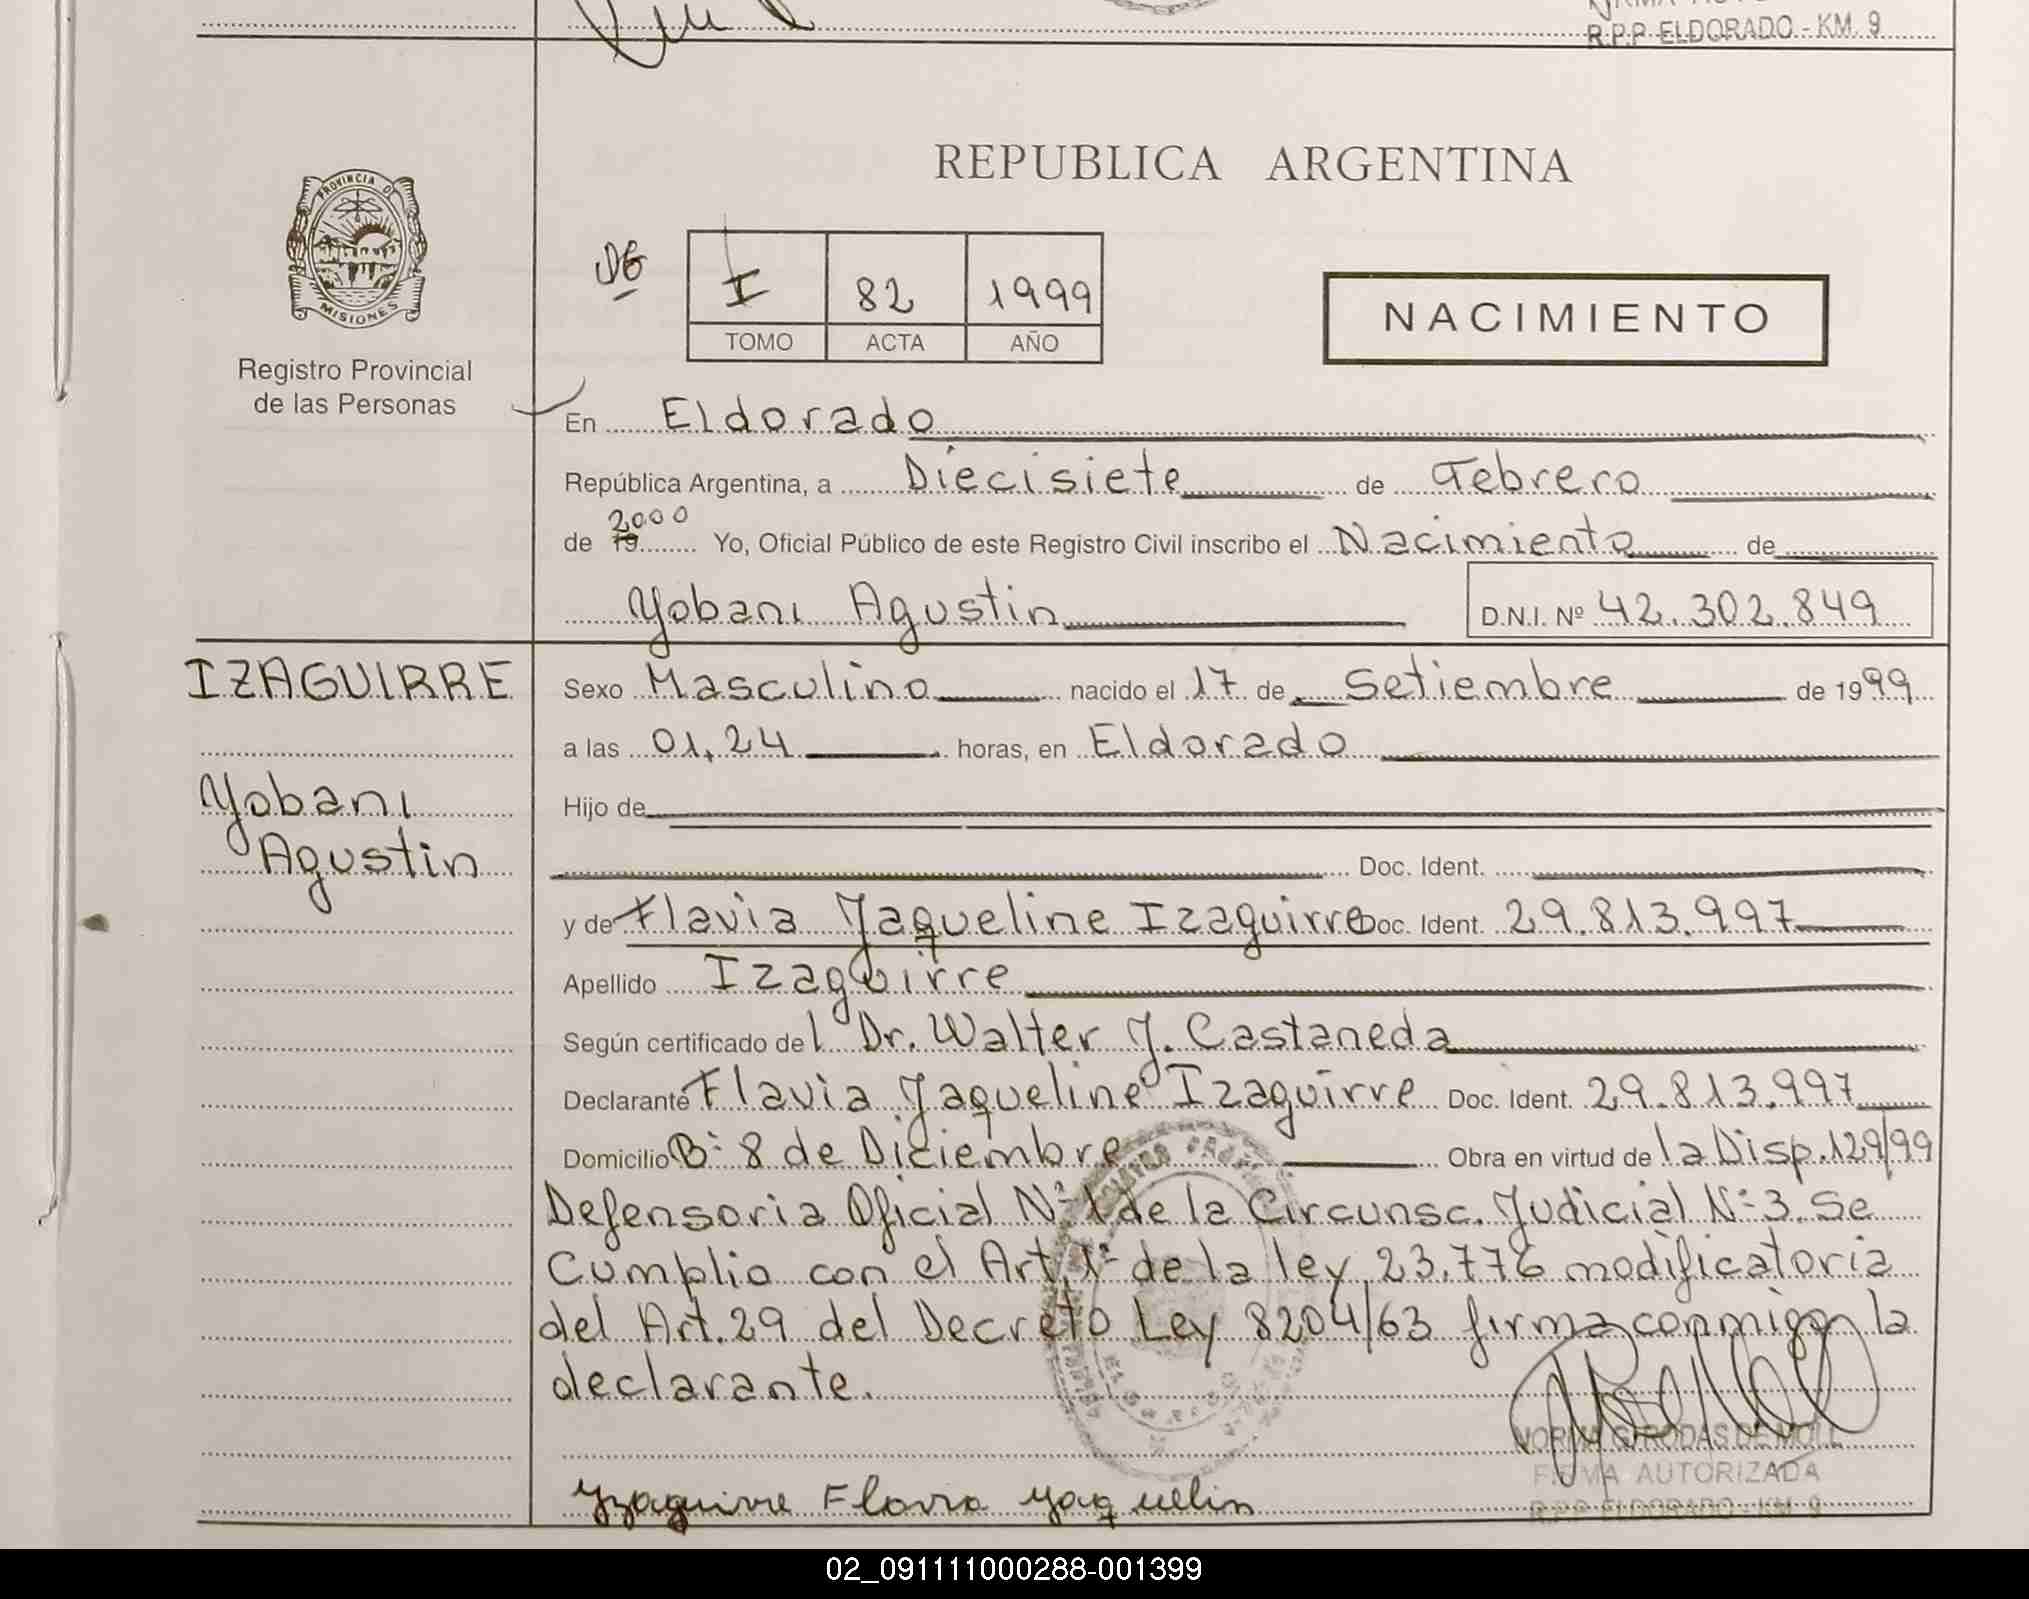 R.P.P. ELDORADO - KM. 9
PROVINCIA D
MISIONES
Registro Provincial
de las Personas
REPUBLICA ARGENTINA
DG
I 82 1999
TOMO ACTA AÑO
NACIMIENTO
En Eldorado
República Argentina, a Diecisiete de Febrero
de 19 2000 Yo, Oficial Público de este Registro Civil inscribo el Nacimiento de
Yobani Agustin D.N.I. Nº 42.302.849
IZAGUIRRE
Yobani
Agustin
Sexo Masculino nacido el 17 de Setiembre de 1999
a las 01,24 horas, en Eldorado
Hijo de
Doc. Ident.
y de Flavia Yaqueline Izaguirre Doc. Ident. 29.813.997
Apellido Izaguirre
Según certificado del Dr. Walter J. Castaneda
Declarante Flavia Yaqueline Izaguirre Doc. Ident. 29.813.997
Domicilio Bº 8 de Diciembre Obra en virtud de la Disp. 129/99
Defensoria Oficial Nº 1 de la Circunsc. Judicial Nº 3. Se
Cumplio con el Art. 1º de la ley 23.776 modificatoria
del Art. 29 del Decreto Ley 8204/63 firma conmigo la
declarante.
NORMA G. RODAS DE MOLL
FIRMA AUTORIZADA
R.P.P. ELDORADO - KM. 9
Yzaguirre Flavia Yaquelin
02_091111000288-001399